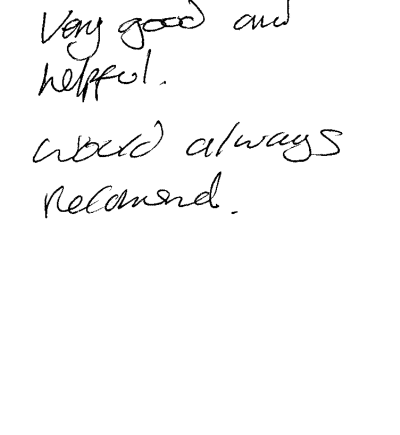 Very good and
helpful.
would always
Recomend.